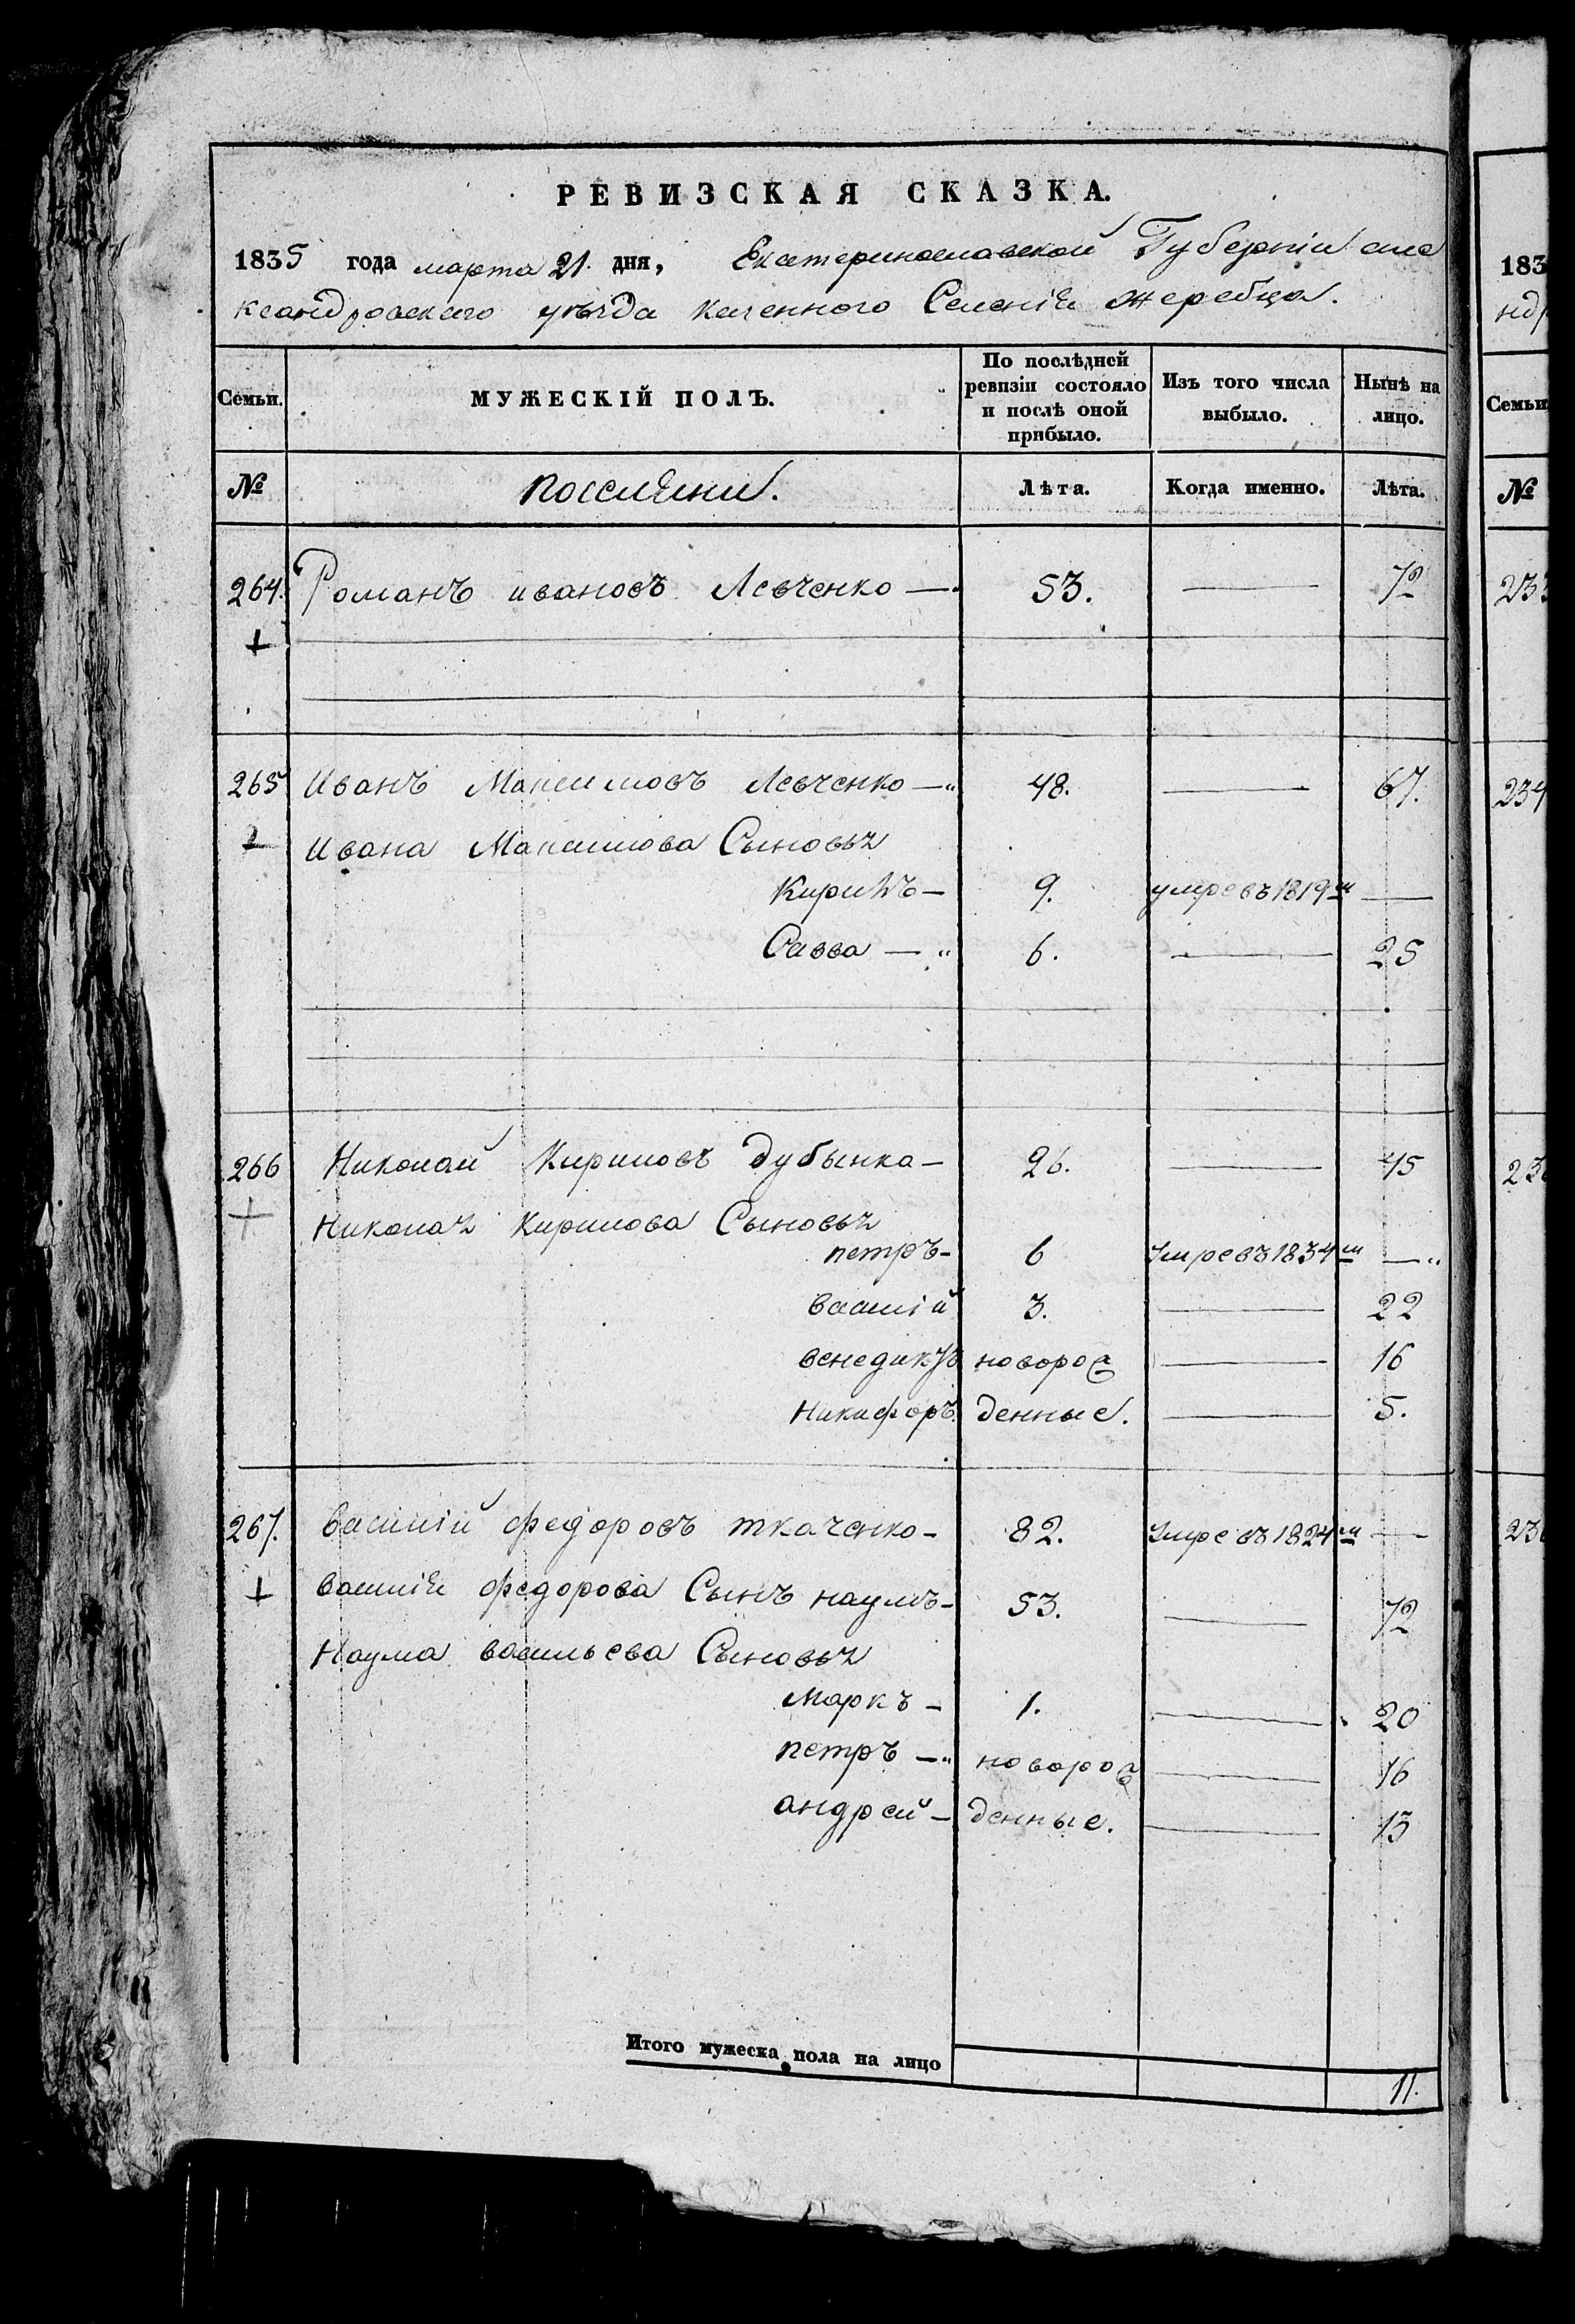 РЕВИЗСКАЯ СКАЗКА.
1835 года марта 21. дня, Екатеринославской Губерніи але
ксандровскаго уѣзда казенного Селенія жеребца.
Семьи. МУЖЕСКІЙ ПОЛЪ. По послѣдней ревизіи состояло и послѣ оной прибыло. Изъ того числа выбыло. Нынѣ на лицо.
№ поселяни. Лѣта. Когда именно. Лѣта.
264. Романъ ивановъ Левченко — 53. — 72
265 Иванъ Максимовъ Левченко — 48. — 67.
Ивана Максимова Сыновья
Кирилъ — 9. умре въ 1819м —
Савва — 6. — 25
266 Николай Кириловъ дубынка — 26. — 45
Николая Кирилова Сыновья
петръ — 6 Умре въ 1834м —
василій 3. — 22
венедиктъ новорож — 16
Никифоръ денные. — 5.
267. василій федоровъ ткаченко — 82. Умре въ 1824м —
василія федорова Сынъ наумъ — 53. — 72
Наума васильева Сыновья
Маркъ — 1. — 20
петръ — новорож — 16
андрей — денные. — 13
Итого мужеска пола на лицо 11.
183
ндр
Семьи
№
233
234